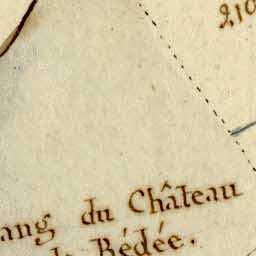 210
ang du Château
de Bédée.